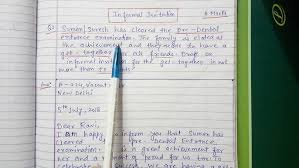 Informal Invitation
6 Marks
Q) Suman Suresh has cleared the Pre-Dental
entrance examination. The family is elated at
the achievement and they decide to have a
get-together for all friends. Draft an
informal invitation for the get together in not
more than 50 words.
A-314, Vasant
New Delhi
5th July, 2018
Dear Ravi,
I am happy inform you that Suman has
cleared Pre-Dental Entrance.
great achievement for
her and a moment of proud for us too. To
success. We are having a get